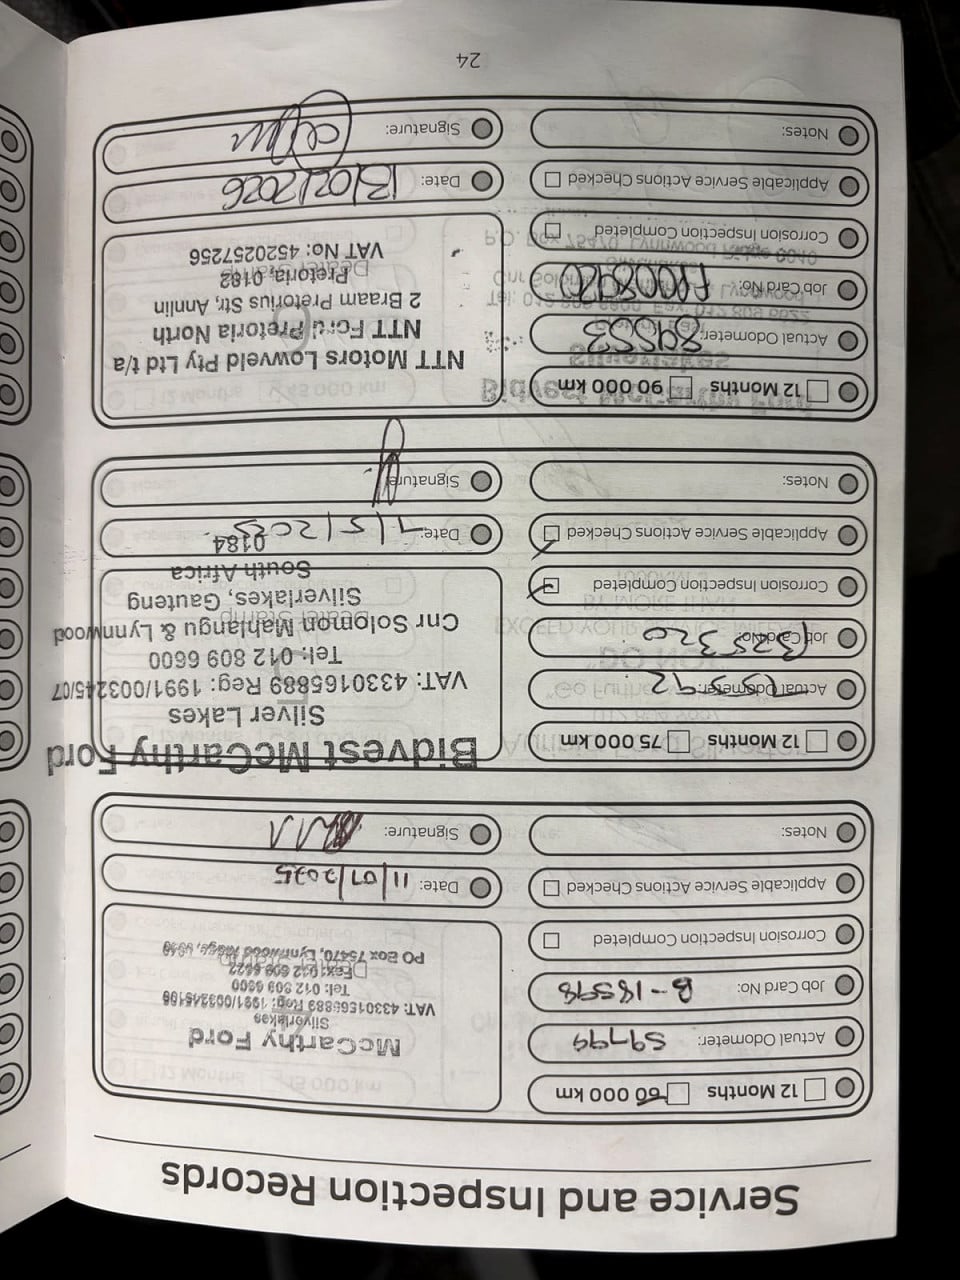 Service and Inspection Records
12 Months 60 000 km
Actual Odometer: 59799
Job Card No: B-185598
Corrosion Inspection Completed
Applicable Service Actions Checked
Notes:
McCarthy Ford
Silverlakes
VAT: 4330165889 Reg: 1991/003245/06
Tel: 012 809 6600
Fax: 012 809 6622
PO Box 75470, Lynnwood Ridge, 0040
Date: 11/07/2025
Signature:
12 Months 75 000 km
Actual Odometer:
Job Card No:
Corrosion Inspection Completed
Applicable Service Actions Checked
Notes:
Bidvest McCarthy Ford
Silver Lakes
VAT: 4330165889 Reg: 1991/003245/07
Tel: 012 809 6600
Cnr Solomon Mahlangu & Lynnwood
Silverlakes, Gauteng
South Africa
0184
Date:
Signature:
12 Months 90 000 km
Actual Odometer:
Job Card No:
Corrosion Inspection Completed
Applicable Service Actions Checked
Notes:
NTT Motors Lowveld Pty Ltd t/a
NTT Ford Pretoria North
2 Braam Pretorius Str, Annlin
Pretoria, 0182
VAT No: 4520257256
Date: 13/02/2026
Signature:
24